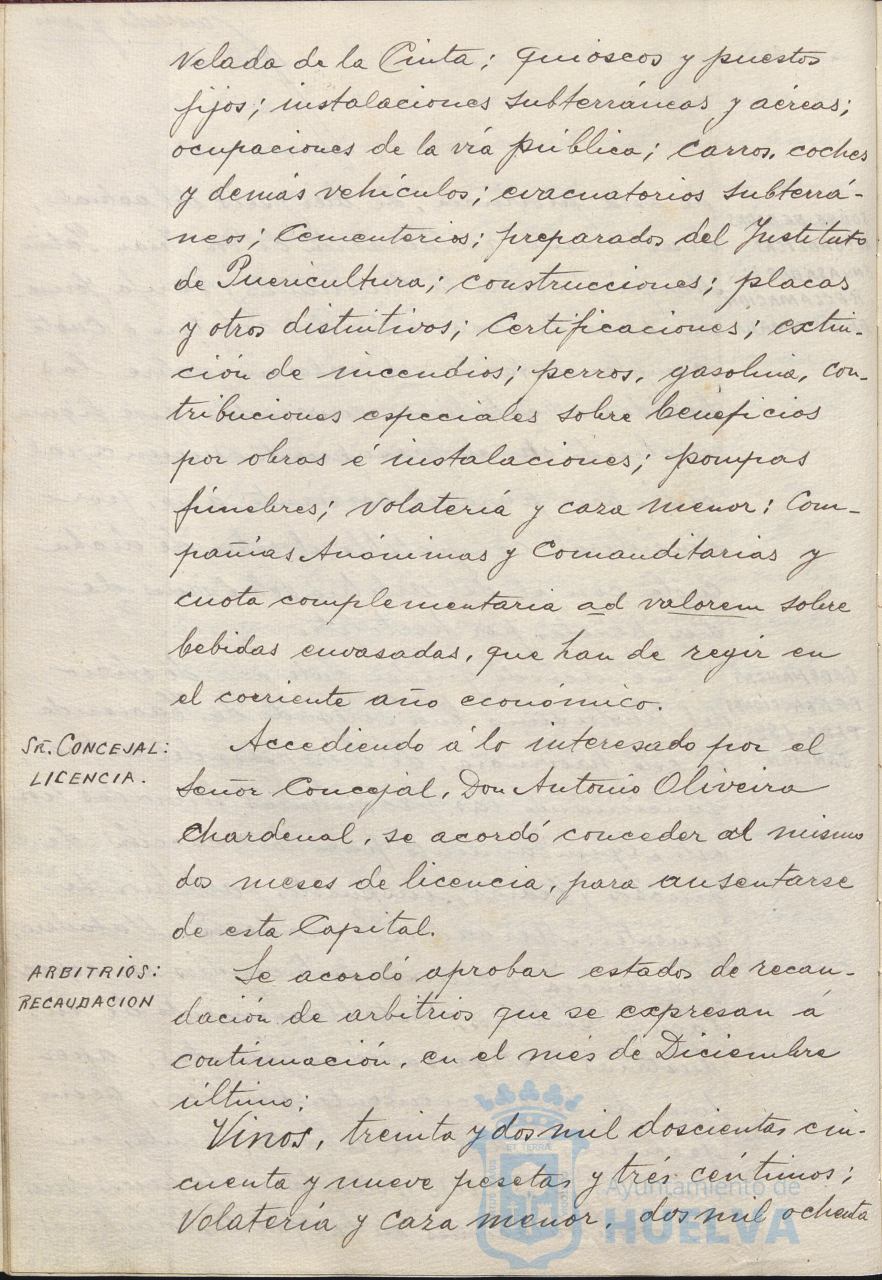 Velada de la Cinta; quioscos y puestos
fijos; instalaciones subterráneas y aéreas;
ocupaciones de la vía pública; carros, coches
y demás vehículos; evacuatorios subterrá-
neos; Cementerios; preparados del Instituto
de Puericultura; construcciones; placas
y otros distintivos; Certificaciones; extin-
ción de incendios; perros, gasolina, con-
tribuciones especiales sobre beneficios
por obras é instalaciones; pompas
fúnebres; Volatería y caza menor; Com-
pañías Anónimas y Comanditarias y
cuota complementaria ad valorem sobre
bebidas envasadas, que han de regir en
el corriente año económico.
SR. CONCEJAL:
LICENCIA.
Accediendo á lo interesado por el
Señor Concejal, Don Antonio Oliveira
Chardenal, se acordó conceder al mismo
dos meses de licencia, para ausentarse
de esta Capital.
ARBITRIOS:
RECAUDACION
Se acordó aprobar estados de recau-
dación de arbitrios que se expresan á
continuación, en el més de Diciembre
último:
Vinos, treinta y dos mil doscientas cin-
cuenta y nueve pesetas y trés céntimos;
Volatería y caza menor, dos mil ochenta
Ayuntamiento de
HUELVA